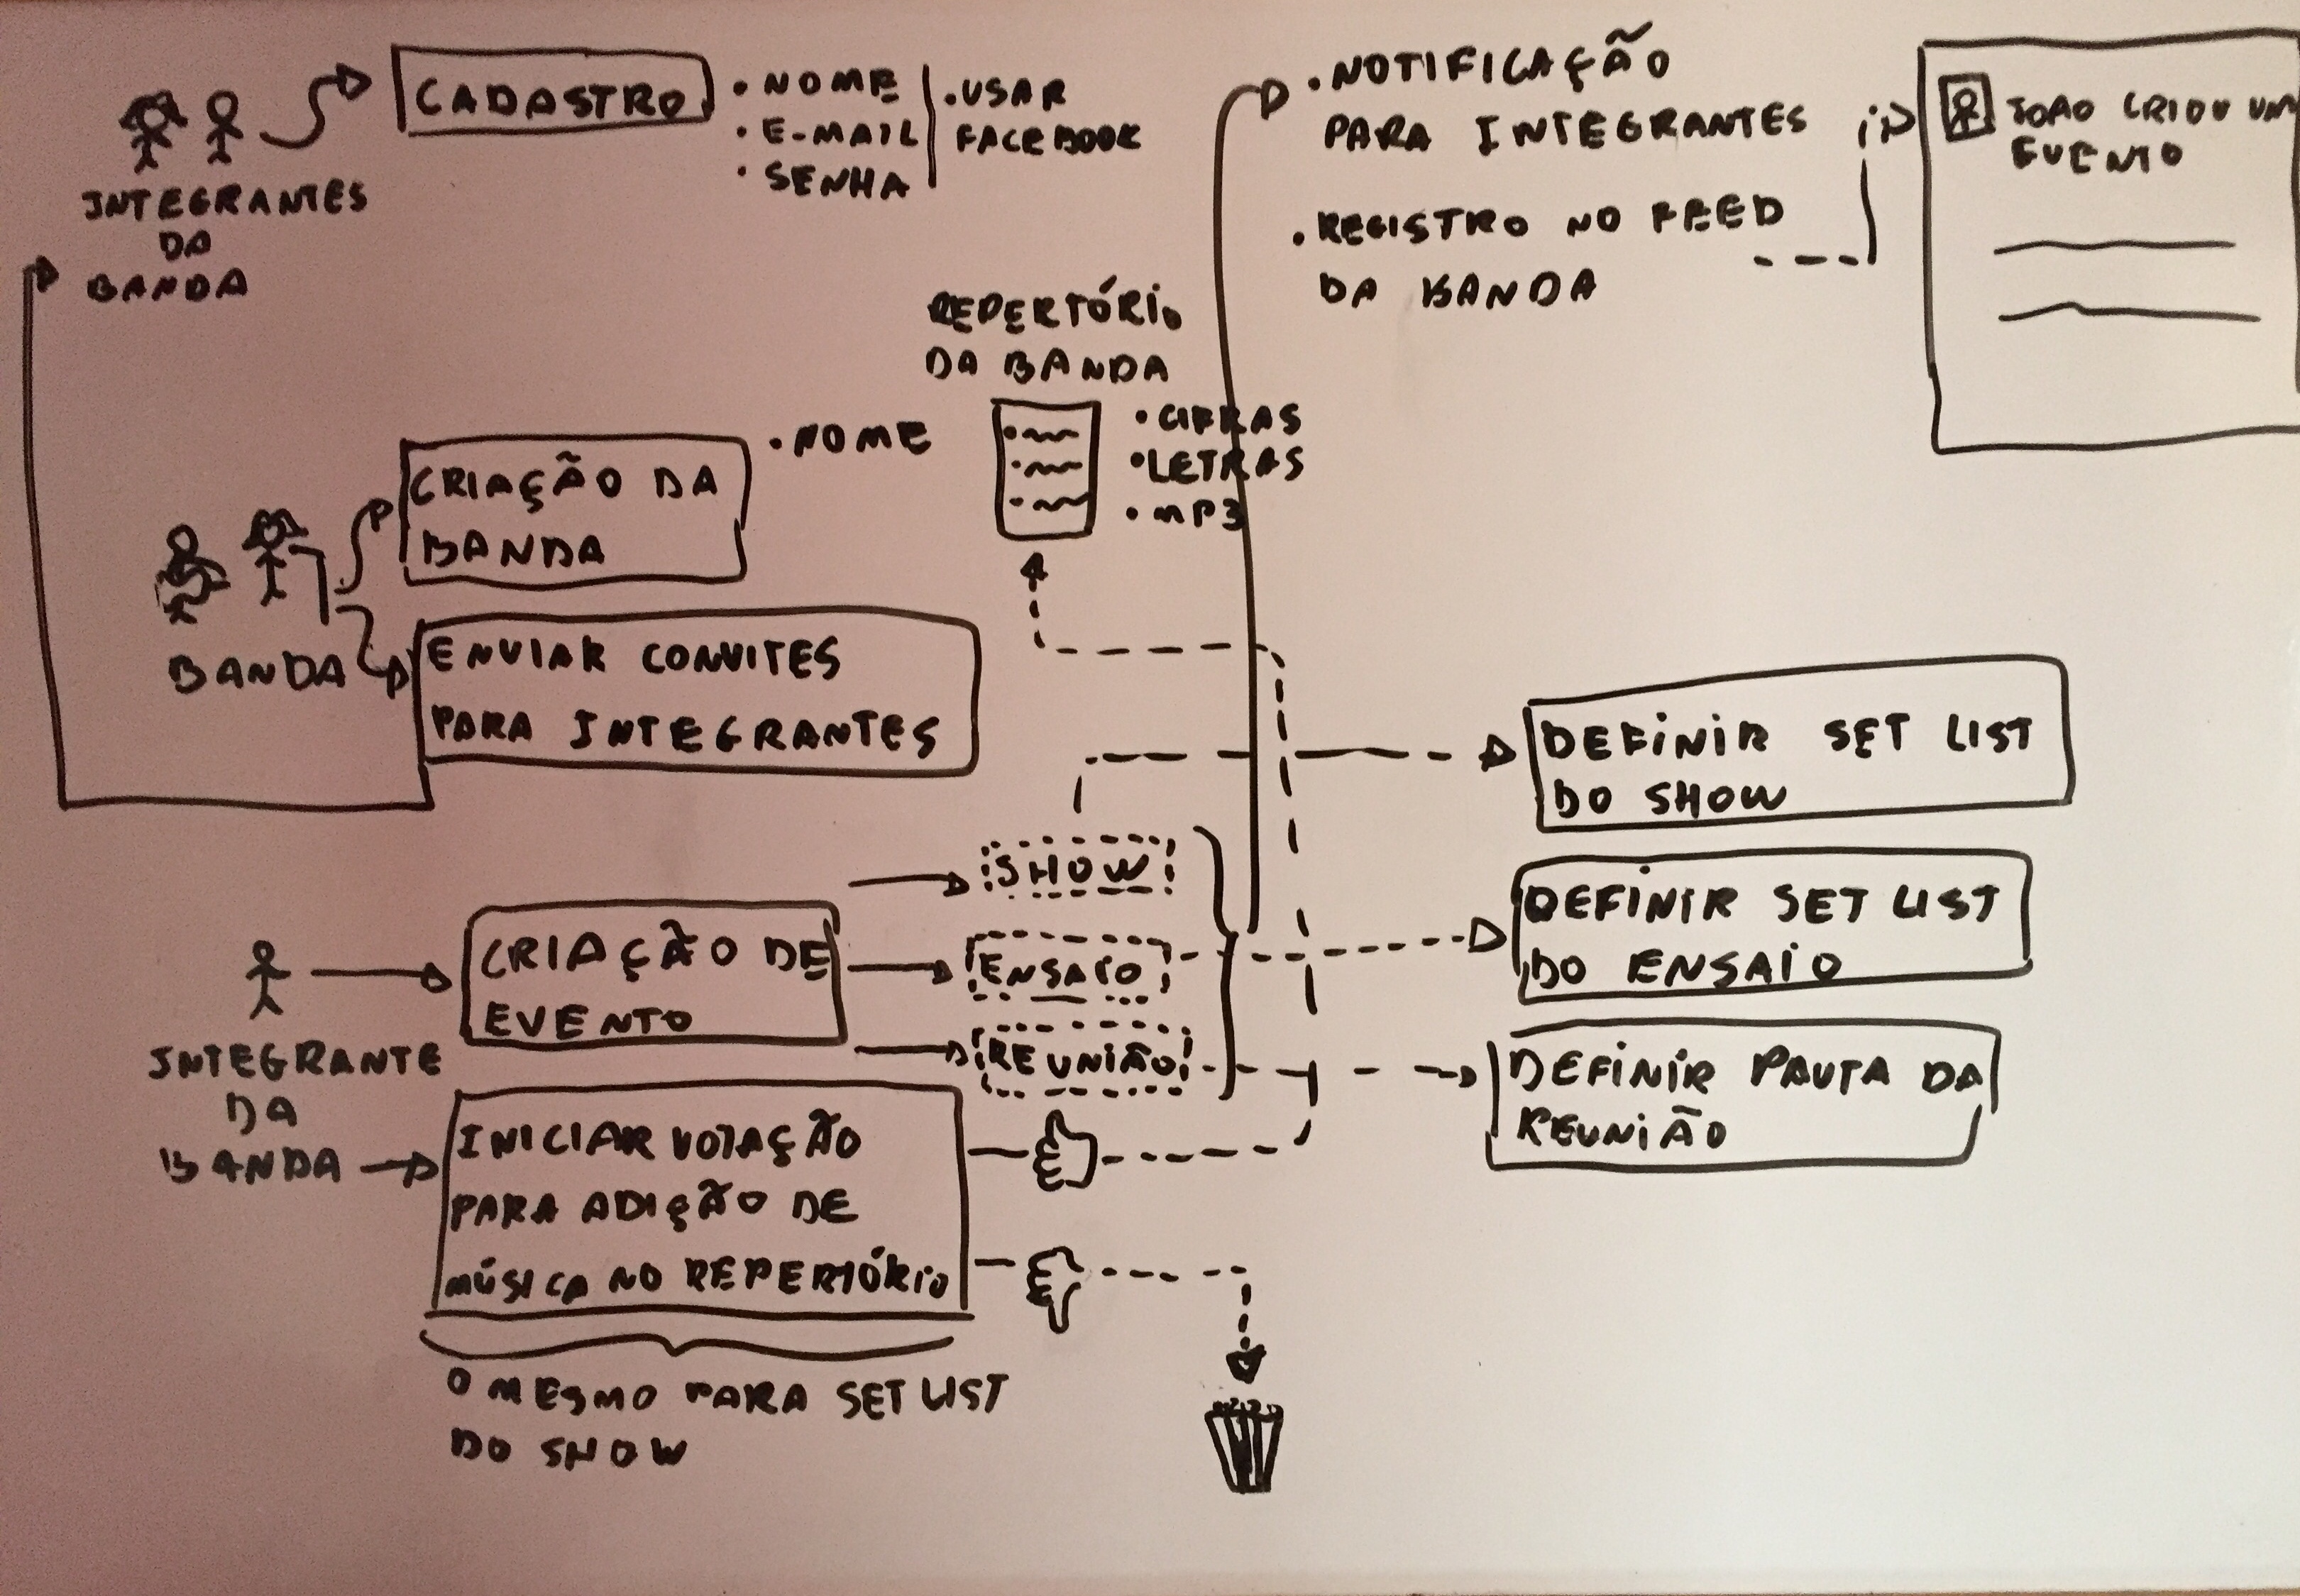 CADASTRO
• NOME
• E-MAIL
• SENHA
• USAR
FACEBOOK
INTEGRANTES
DA
BANDA
• NOTIFICAÇÃO
PARA INTEGRANTES
• REGISTRO NO FEED
DA BANDA
JOÃO CRIOU UM
EVENTO
REPERTÓRIO
DA BANDA
• CIFRAS
• LETRAS
• MP3
CRIAÇÃO DA
BANDA
• NOME
BANDA
ENVIAR CONVITES
PARA INTEGRANTES
DEFINIR SET LIST
DO SHOW
SHOW
CRIAÇÃO DE
EVENTO
ENSAIO
DEFINIR SET LIST
DO ENSAIO
REUNIÃO
DEFINIR PAUTA DA
REUNIÃO
INTEGRANTE
DA
BANDA
INICIAR VOTAÇÃO
PARA ADIÇÃO DE
MÚSICA NO REPERTÓRIO
O MESMO PARA SET LIST
DO SHOW